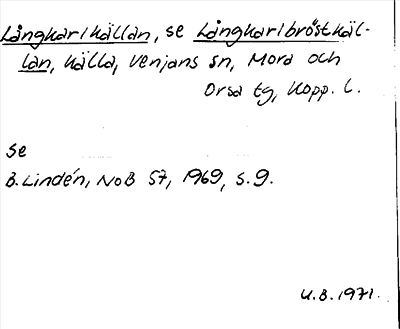 Långkarlkällan, se Långkarlbröstkäl-
lan, källa, Venjans sn, Mora och
Orsa tg, Kopp. l.
se
B. Lindén, NoB 57, 1969, s. 9.
U.B. 1971.